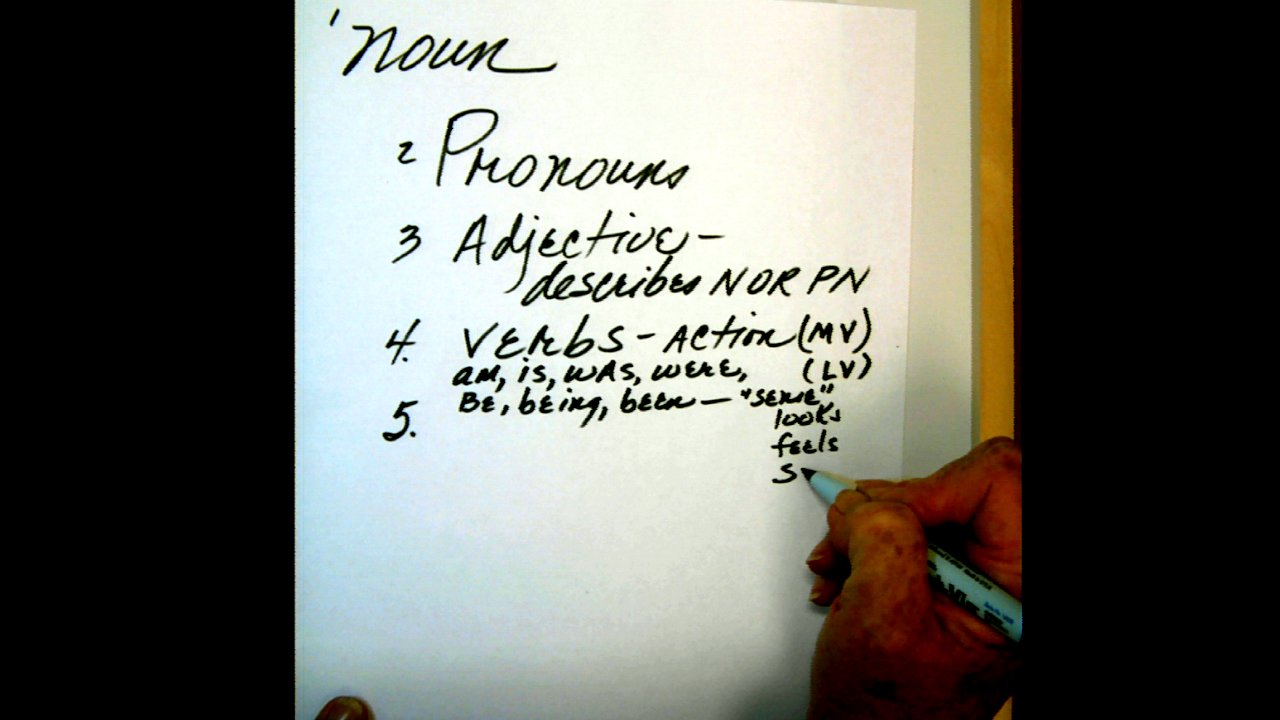 1 noun
2 Pronouns
3 Adjective -
describes N OR PN
4. VERbS - ACtion (MV)
am, is, WAS, were, (LV)
5. BE, being, been — "sense"
looks
feels
S